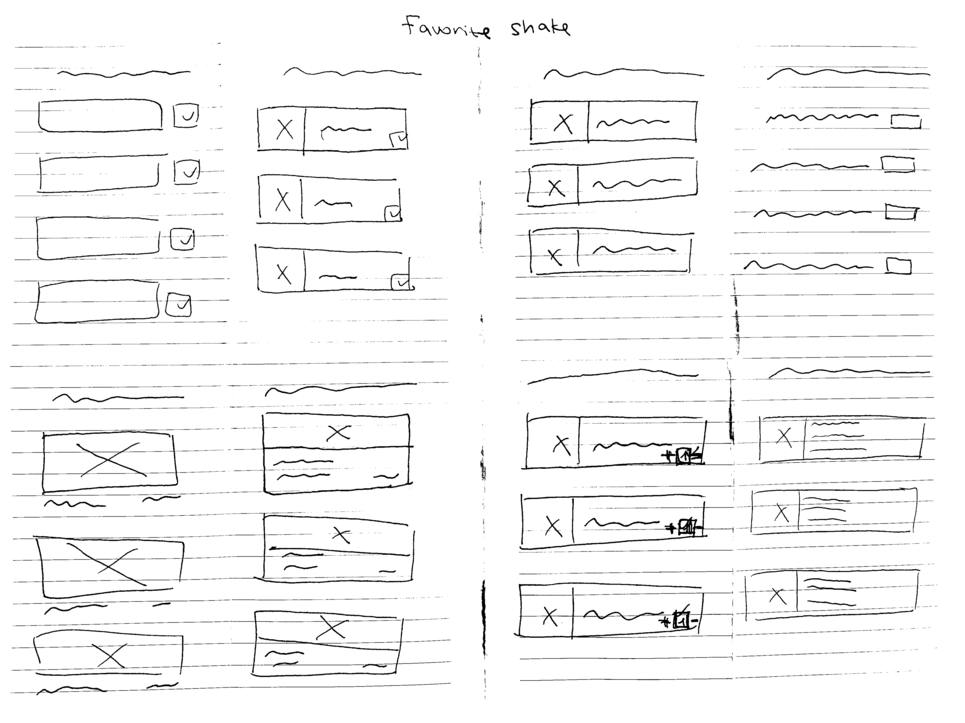 Favorite shake